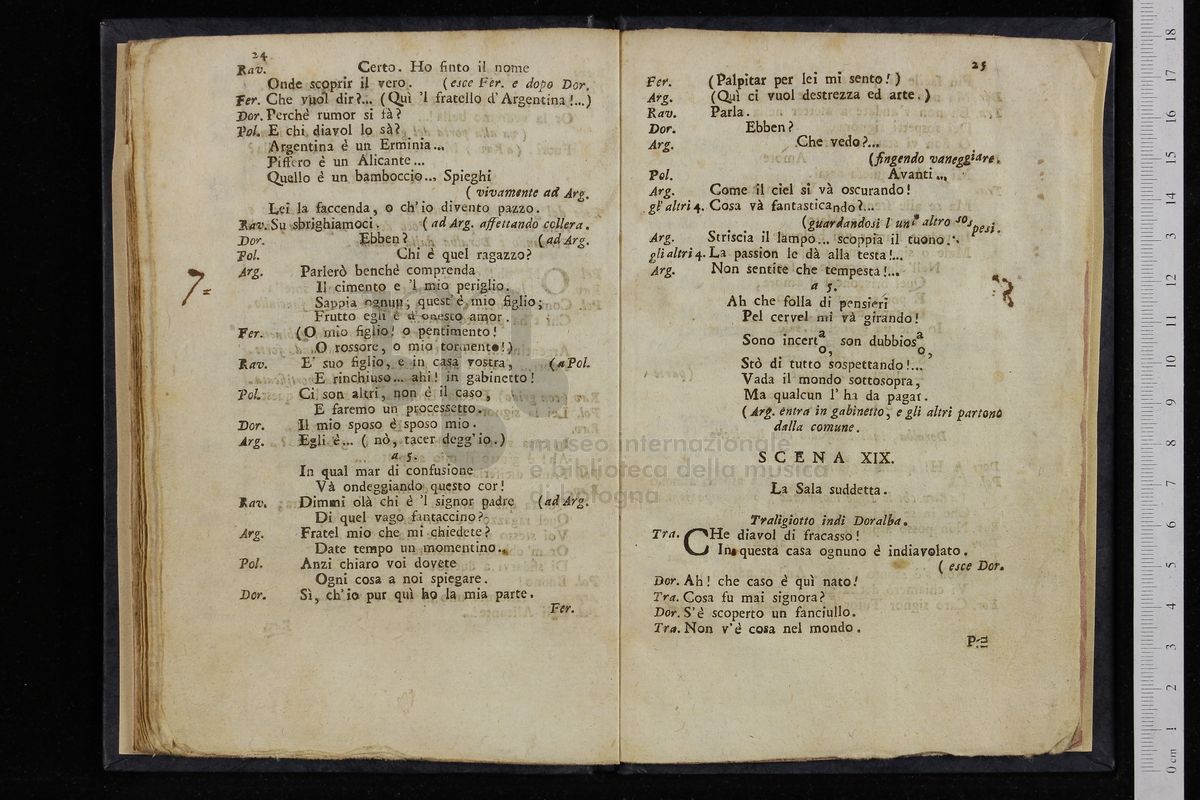 24
Rav. Certo. Ho finto il nome
Onde scoprir il vero. (esce Fer. e dopo Dor.
Fer. Che vuol dir?... (Quì 'l fratello d'Argentina!...)
Dor. Perchè rumor si fà?
Pol. E chi diavol lo sà?
Argentina è un Erminia...
Piffero è un Alicante...
Quello è un bamboccio... Spieghi
(vivamente ad Arg.
Lei la faccenda, o ch'io divento pazzo.
Rav. Su sbrighiamoci. (ad Arg. affettando collera.
Dor. Ebben? (ad Arg.
Pol. Chi è quel ragazzo?
Arg. Parlerò benchè comprenda
Il cimento e 'l mio periglio.
Sappia ognun, quest'è mio figlio;
Frutto egli è d'onesto amor.
Fer. (O mio figlio! o pentimento!
O rossore, o mio tormento!)
Rav. E' suo figlio, e in casa vostra, (a Pol.
E rinchiuso... ahi! in gabinetto!
Pol. Ci son altri, non è il caso,
E faremo un processetto.
Dor. Il mio sposo è sposo mio.
Arg. Egli è... (nò, tacer degg'io.)
a 5.
In qual mar di confusione
Và ondeggiando questo cor!
Rav. Dimmi olà chi è 'l signor padre (ad Arg.
Di quel vago fantaccino?
Arg. Fratel mio che mi chiedete?
Date tempo un momentino..
Pol. Anzi chiaro voi dovete
Ogni cosa a noi spiegare.
Dor. Sì, ch'io pur quì ho la mia parte.
Fer.
25
Fer. (Palpitar per lei mi sento!)
Arg. (Quì ci vuol destrezza ed arte.)
Rav. Parla.
Dor. Ebben?
Arg. Che vedo?...
(fingendo vaneggiare.
Pol. Avanti...
Arg. Come il ciel si và oscurando!
gl'altri 4. Cosa và fantasticando?...
(guardandosi l'un' altro sospesi.
Arg. Striscia il lampo... scoppia il tuono...
gli altri 4. La passion le dà alla testa!...
Arg. Non sentite che tempesta!...
a 5.
Ah che folla di pensieri
Pel cervel mi và girando!
Sono incerta/o, son dubbiosa/o,
Stò di tutto sospettando!...
Vada il mondo sottosopra,
Ma qualcun l'ha da pagar.
(Arg. entra in gabinetto, e gli altri partono
dalla comune.
SCENA XIX.
La Sala suddetta.
Traligiotto indi Doralba.
Tra. CHe diavol di fracasso!
In questa casa ognuno è indiavolato.
(esce Dor.
Dor. Ah! che caso è quì nato!
Tra. Cosa fu mai signora?
Dor. S'è scoperto un fanciullo.
Tra. Non v'è cosa nel mondo.
museo internazionale
e biblioteca della musica
di bologna
0 cm 1 2 3 4 5 6 7 8 9 10 11 12 13 14 15 16 17 18